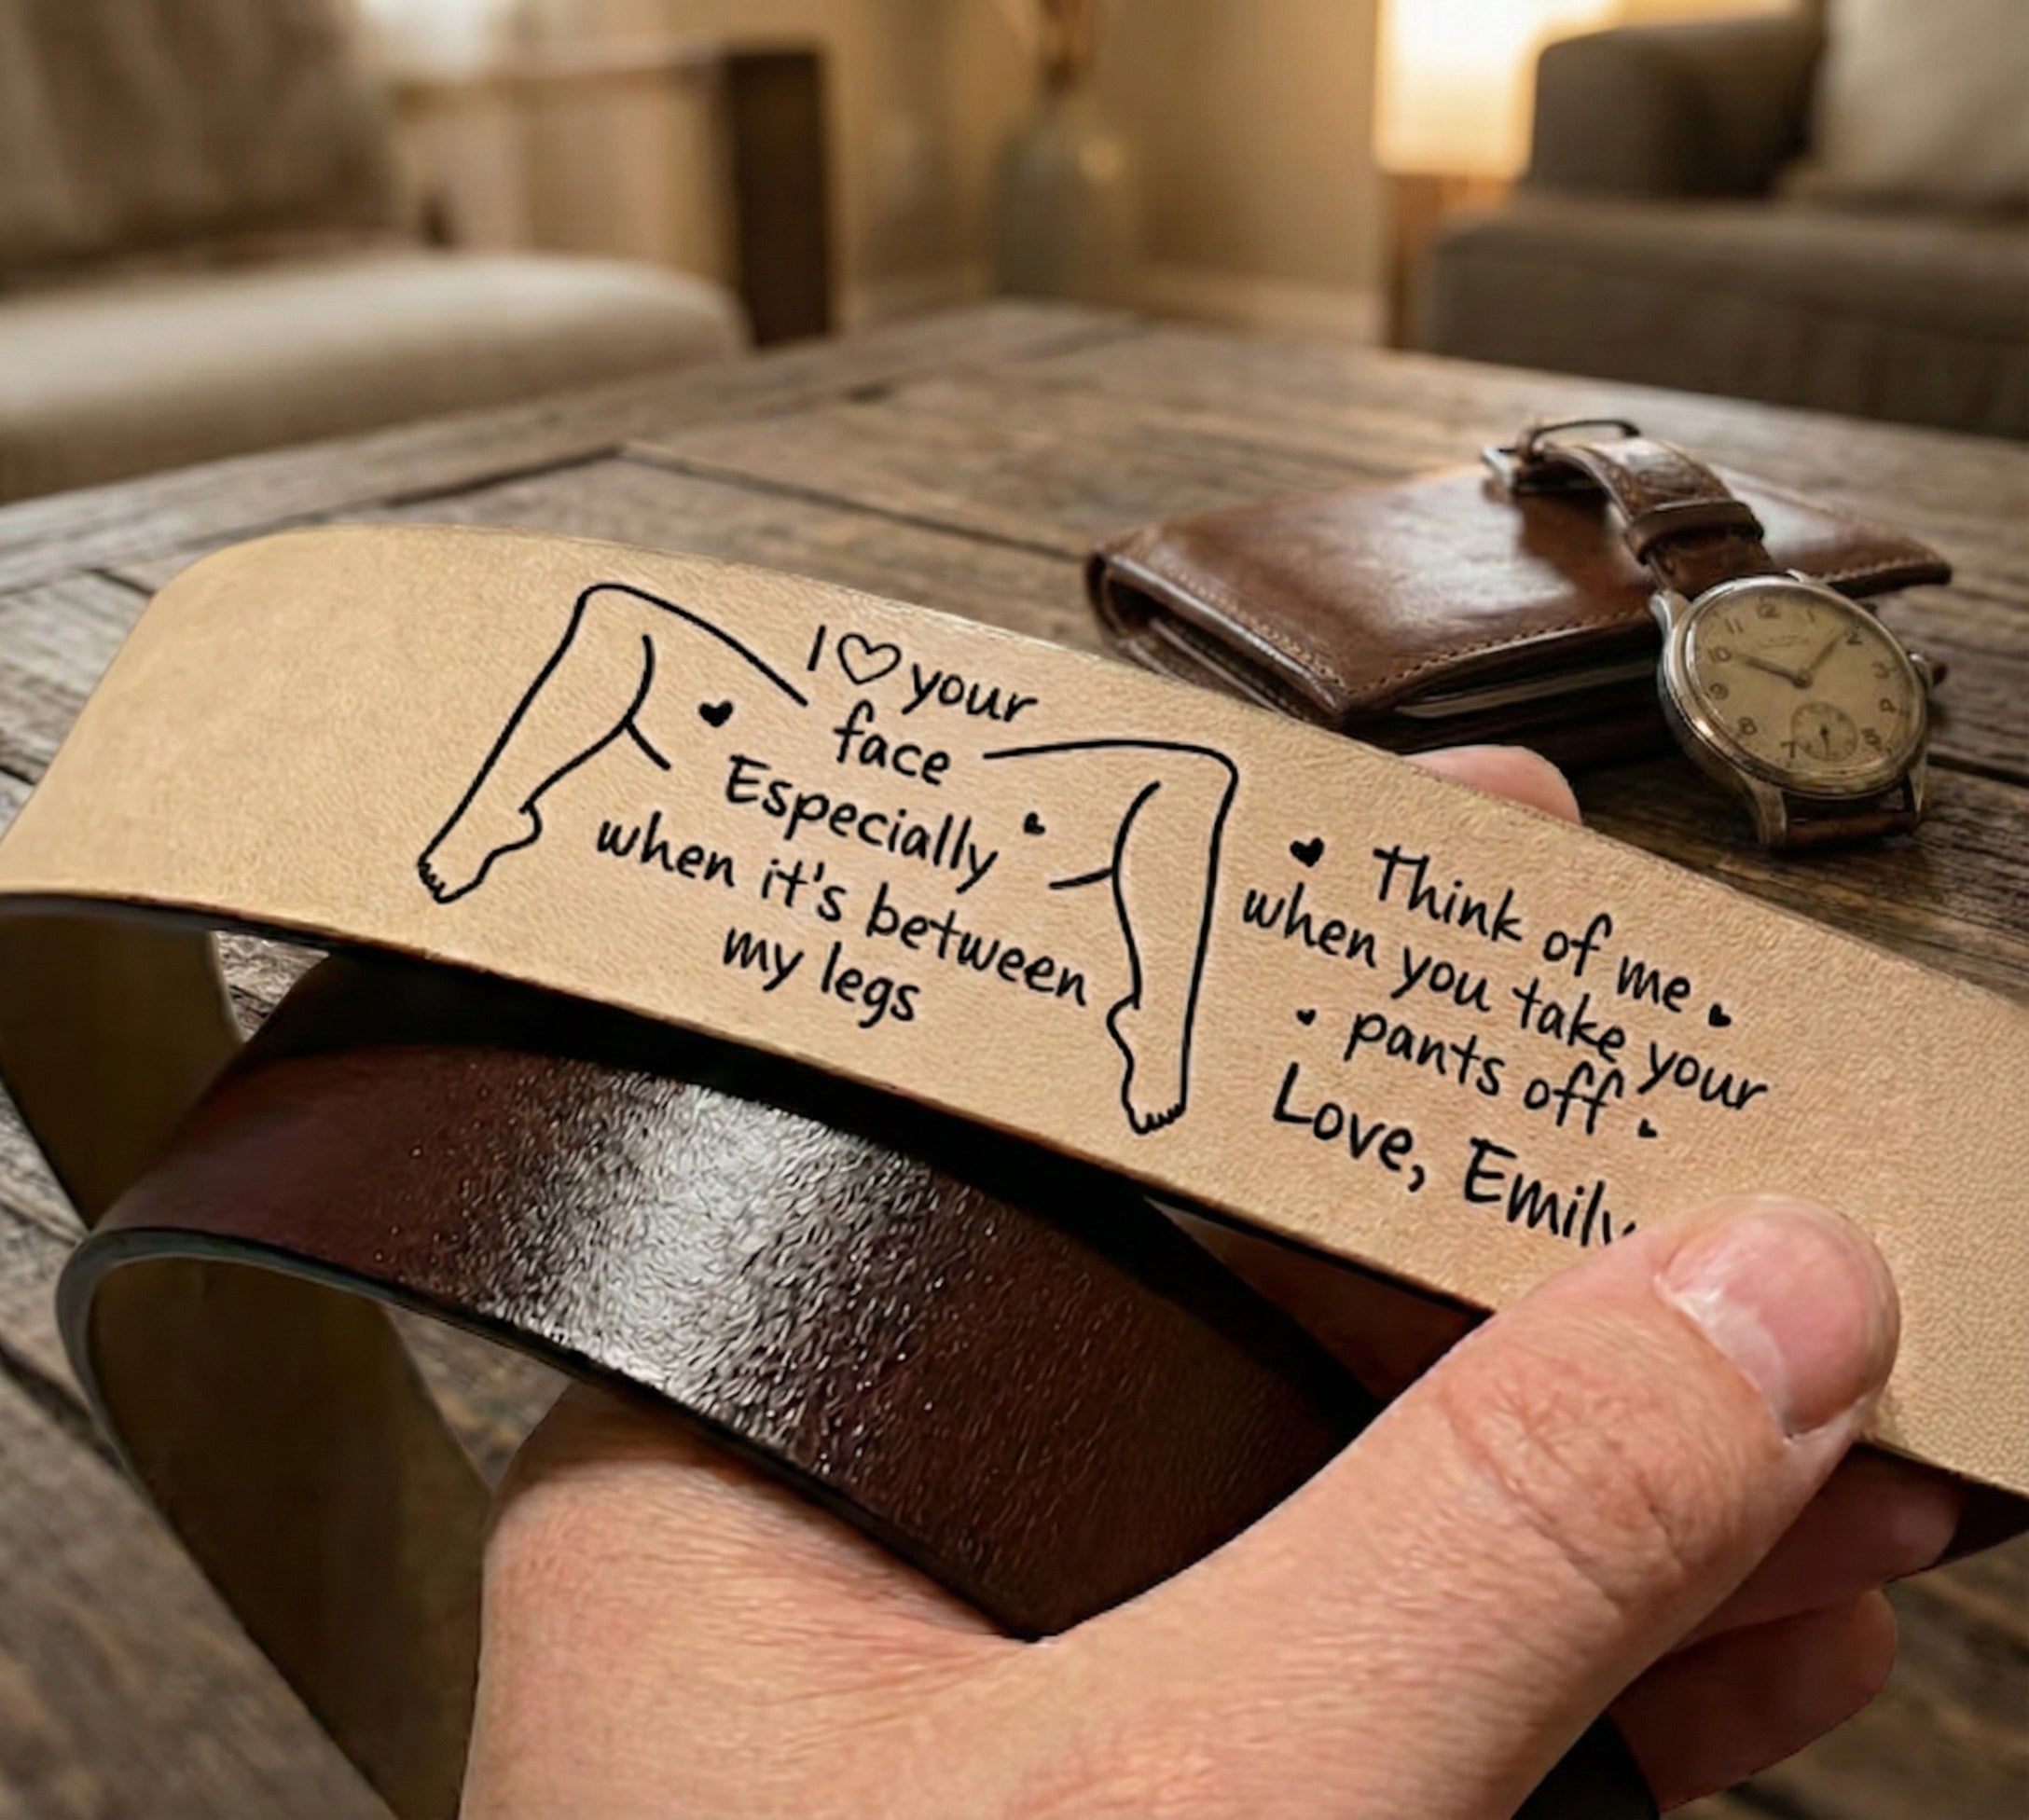 I ♡ your
face
Especially
when it's between
my legs
Think of me
when you take your
pants off
Love, Emily